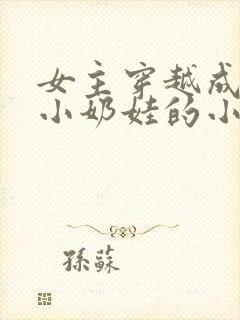 女主穿越成
小奶娃的小
孫蘇